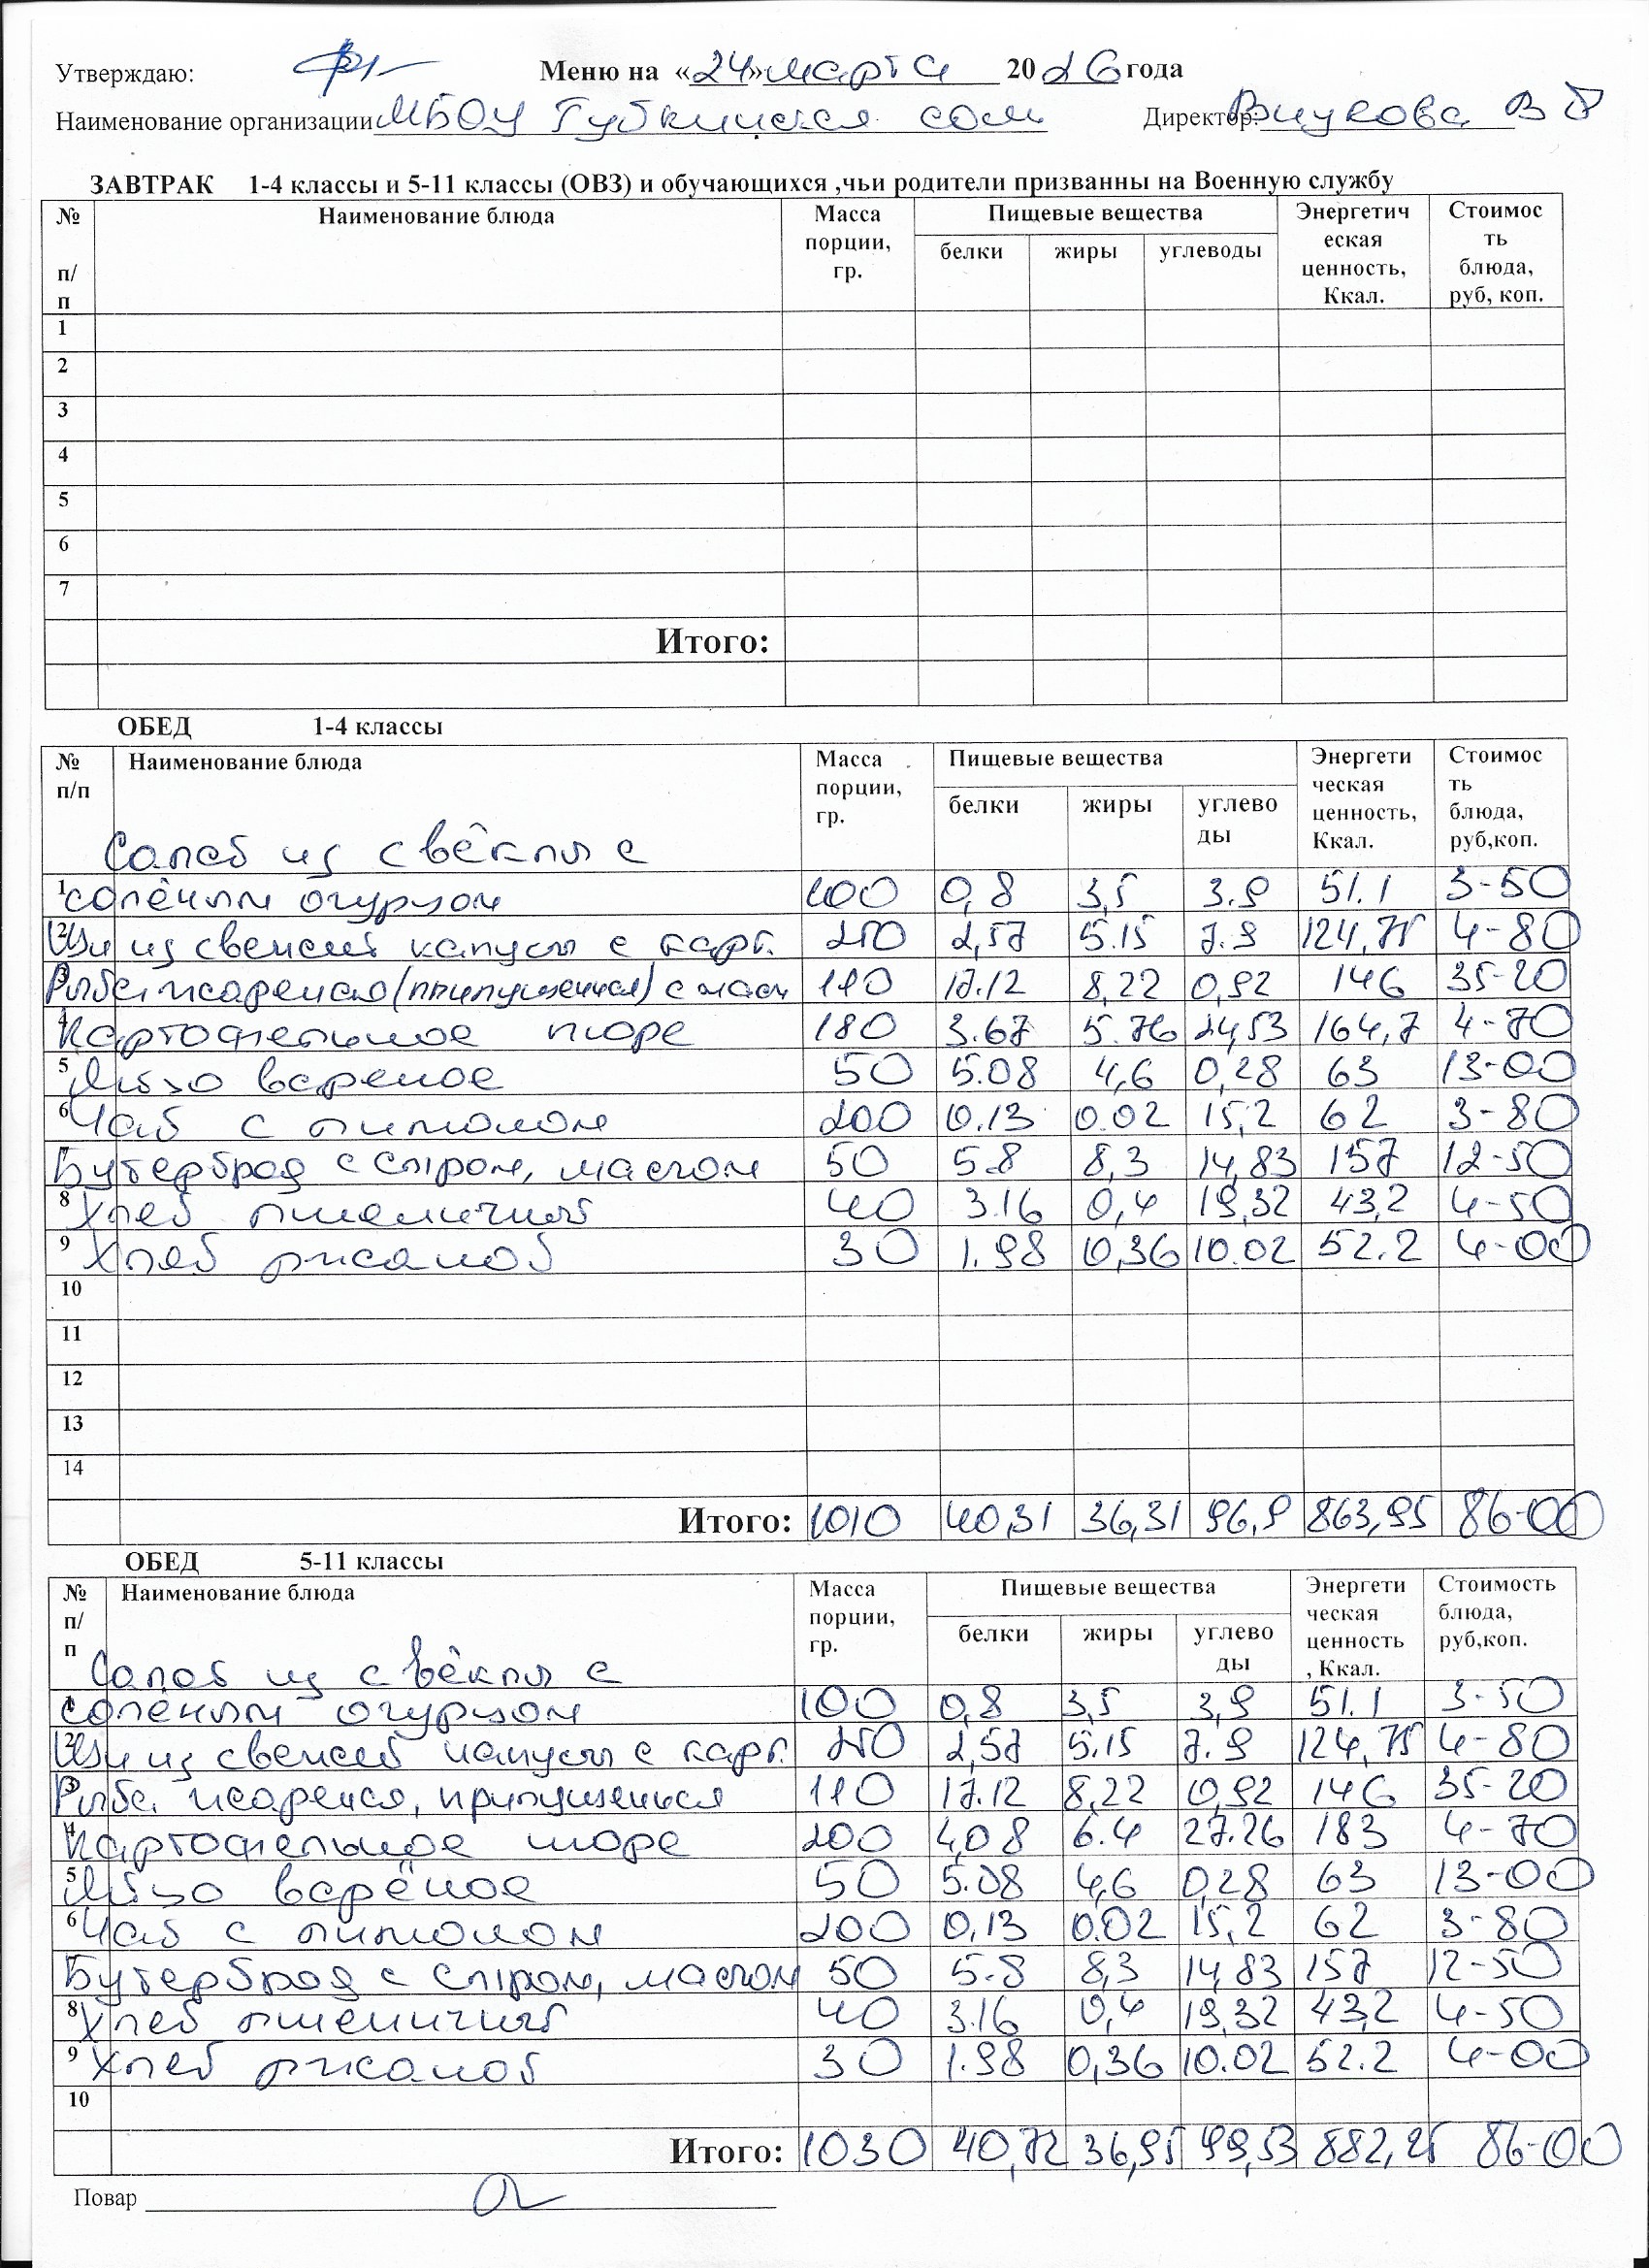 Утверждаю: Меню на «24» марта 2026 года
Наименование организации МБОУ Губкинская сош Директор: Внукова В
ЗАВТРАК 1-4 классы и 5-11 классы (ОВЗ) и обучающихся ,чьи родители призванны на Военную службу
№ п/п Наименование блюда Масса порции, гр. Пищевые вещества белки жиры углеводы Энергетическая ценность, Ккал. Стоимость блюда, руб, коп.
1
2
3
4
5
6
7
Итого:
ОБЕД 1-4 классы
№ п/п Наименование блюда Масса порции, гр. Пищевые вещества белки жиры углеводы Энергетическая ценность, Ккал. Стоимость блюда, руб,коп.
Салат из свёклы с
1 солёным огурцом 100 0,8 3,5 3.9 51.1 3-50
2 Щи из свежей капусты с карт. 250 2,57 5.15 7.9 124,75 4-80
3 Рыба жареная (припущенная) с масл 110 17.12 8,22 0,92 146 35-20
4 Картофельное пюре 180 3.67 5.76 24,53 164,7 4-70
5 Яйцо вареное 50 5.08 4,6 0,28 63 13-00
6 Чай с лимоном 200 0.13 0.02 15,2 62 3-80
7 Бутерброд с сыром, маслом 50 5.8 8,3 14,83 157 12-50
8 Хлеб пшеничный 40 3.16 0,4 19,32 43,2 4-50
9 Хлеб ржаной 30 1.98 0,36 10.02 52.2 4-00
10
11
12
13
14
Итого: 1010 40,31 36,31 96,9 863,95 86-00
ОБЕД 5-11 классы
№ п/п Наименование блюда Масса порции, гр. Пищевые вещества белки жиры углеводы Энергетическая ценность, Ккал. Стоимость блюда, руб,коп.
Салат из свёклы с
1 солёным огурцом 100 0,8 3,5 3,9 51.1 3-50
2 Щи из свежей капусты с карт. 250 2,57 5.15 7.9 124,75 4-80
3 Рыба жареная, припущенная 110 17.12 8,22 0,92 146 35-20
4 Картофельное пюре 200 4,08 6.4 27.26 183 4-70
5 Яйцо варёное 50 5.08 4,6 0,28 63 13-00
6 Чай с лимоном 200 0,13 0.02 15,2 62 3-80
7 Бутерброд с сыром, маслом 50 5.8 8,3 14,83 157 12-50
8 Хлеб пшеничный 40 3.16 0,4 19,32 43,2 4-50
9 Хлеб ржаной 30 1.98 0,36 10.02 52.2 4-00
10
Итого: 1030 40,72 36,95 99,53 882,25 86-00
Повар